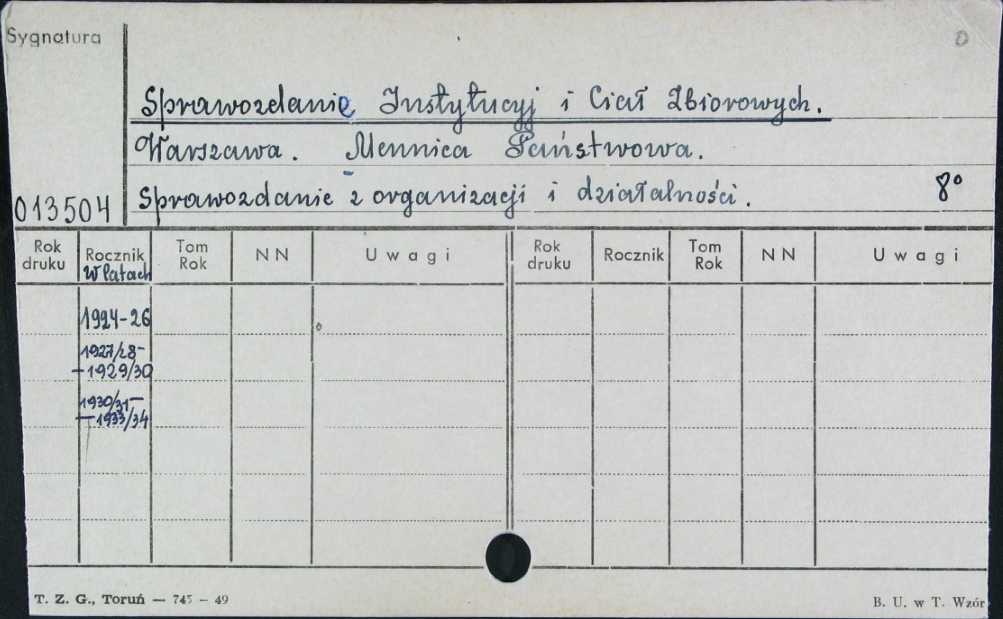 Sygnatura
0
Sprawozdanie Instytucyj i Ciał Zbiorowych.
Warszawa. Mennica Państwowa.
013504 Sprawozdanie z organizacji i działalności. 8°
Rok druku Rocznik W latach Tom Rok NN Uwagi Rok druku Rocznik Tom Rok NN Uwagi
1924-26
1927/28-
-1929/30
1930/31-
-1933/34
T. Z. G., Toruń — 745 - 49 B. U. w T. Wzór